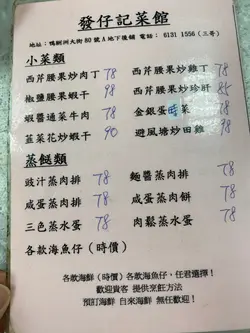 發仔記菜館
地址：鴨脷洲大街80號A地下後舖 電話： 6131 1556 (三哥)
小菜類
西芹腰果炒肉丁 78 西芹腰果炒雞丁 78
椒鹽腰果蝦干 98 西芹腰果炒珍肝 85
蝦醬通菜牛肉 78 金銀蛋時菜 78
韮菜花炒蝦干 90 避風塘炒田雞 98
蒸餸類
豉汁蒸肉排 78 麵醬蒸肉排 78
咸蛋蒸肉排 78 咸蛋蒸肉餅 78
三色蒸水蛋 78 肉鬆蒸水蛋 78
各款海魚仔 (時價)
各款海鮮 (時價) 各款海魚仔，任君選擇！
歡迎貴客 提供烹飪方法
預訂海鮮 自來海鮮 無任歡迎！